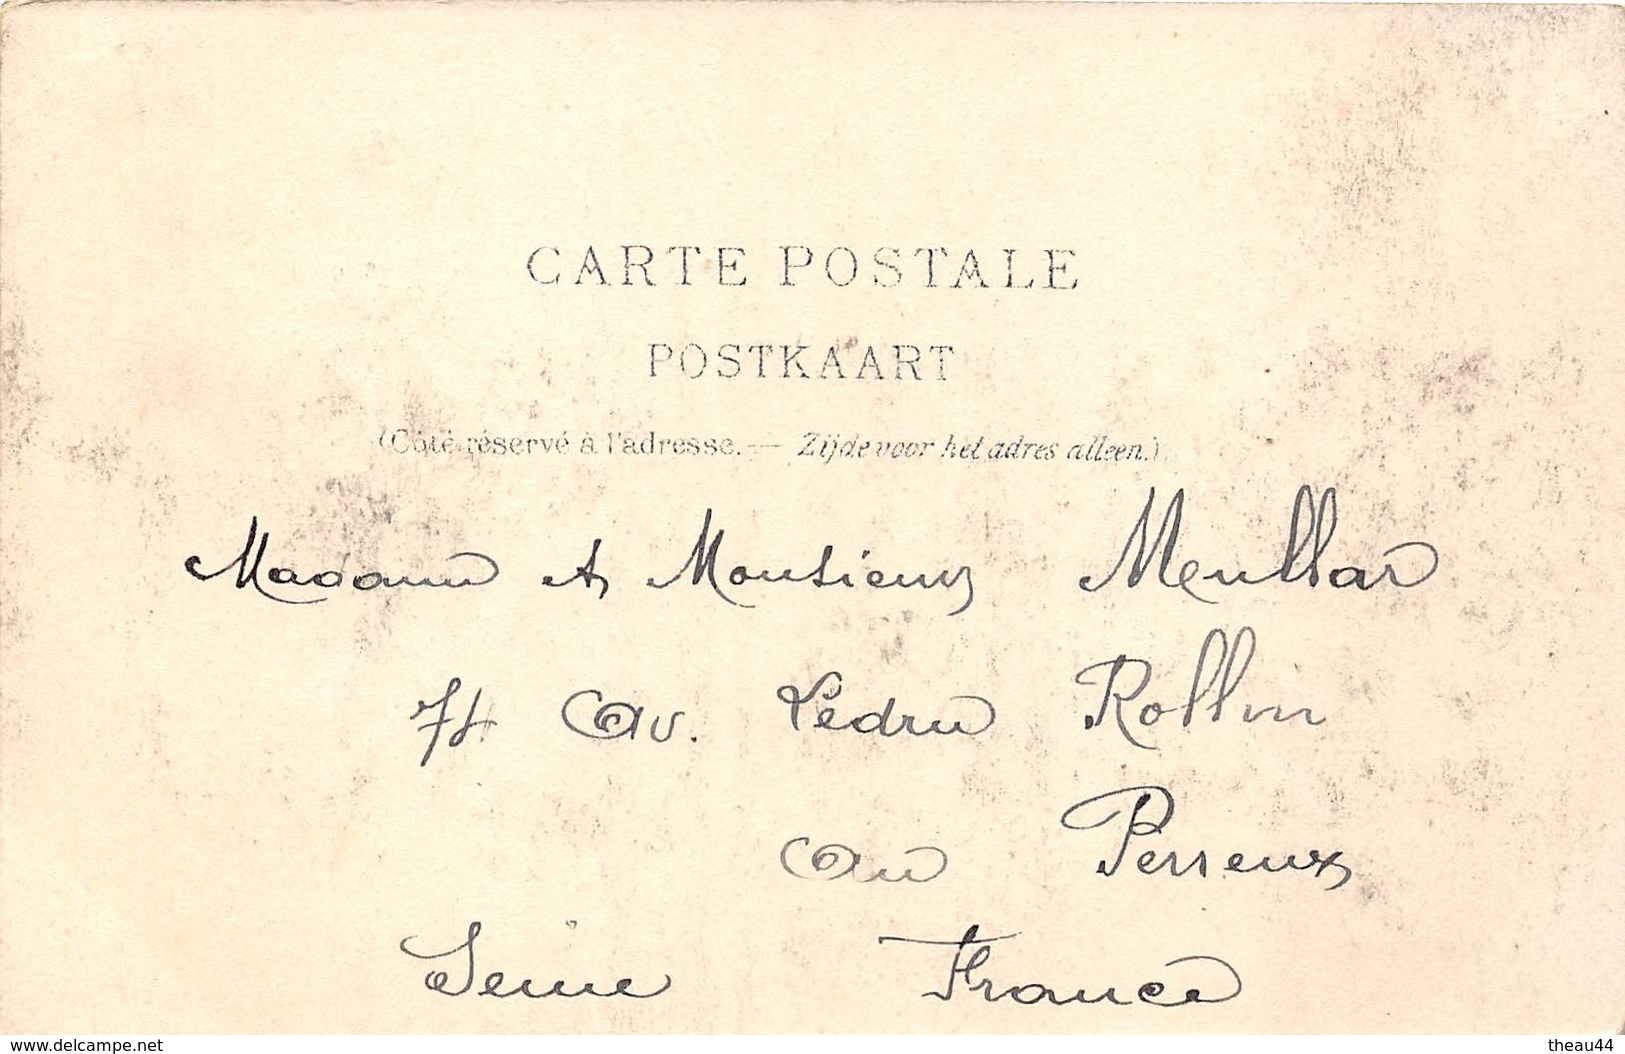 CARTE POSTALE
POSTKAART
(Côté réservé à l'adresse. — Zijde voor het adres alleen.)
Madame et Monsieur
74 Av. Ledru Rollin
au Perreux
Seine France
www.delcampe.net theau44